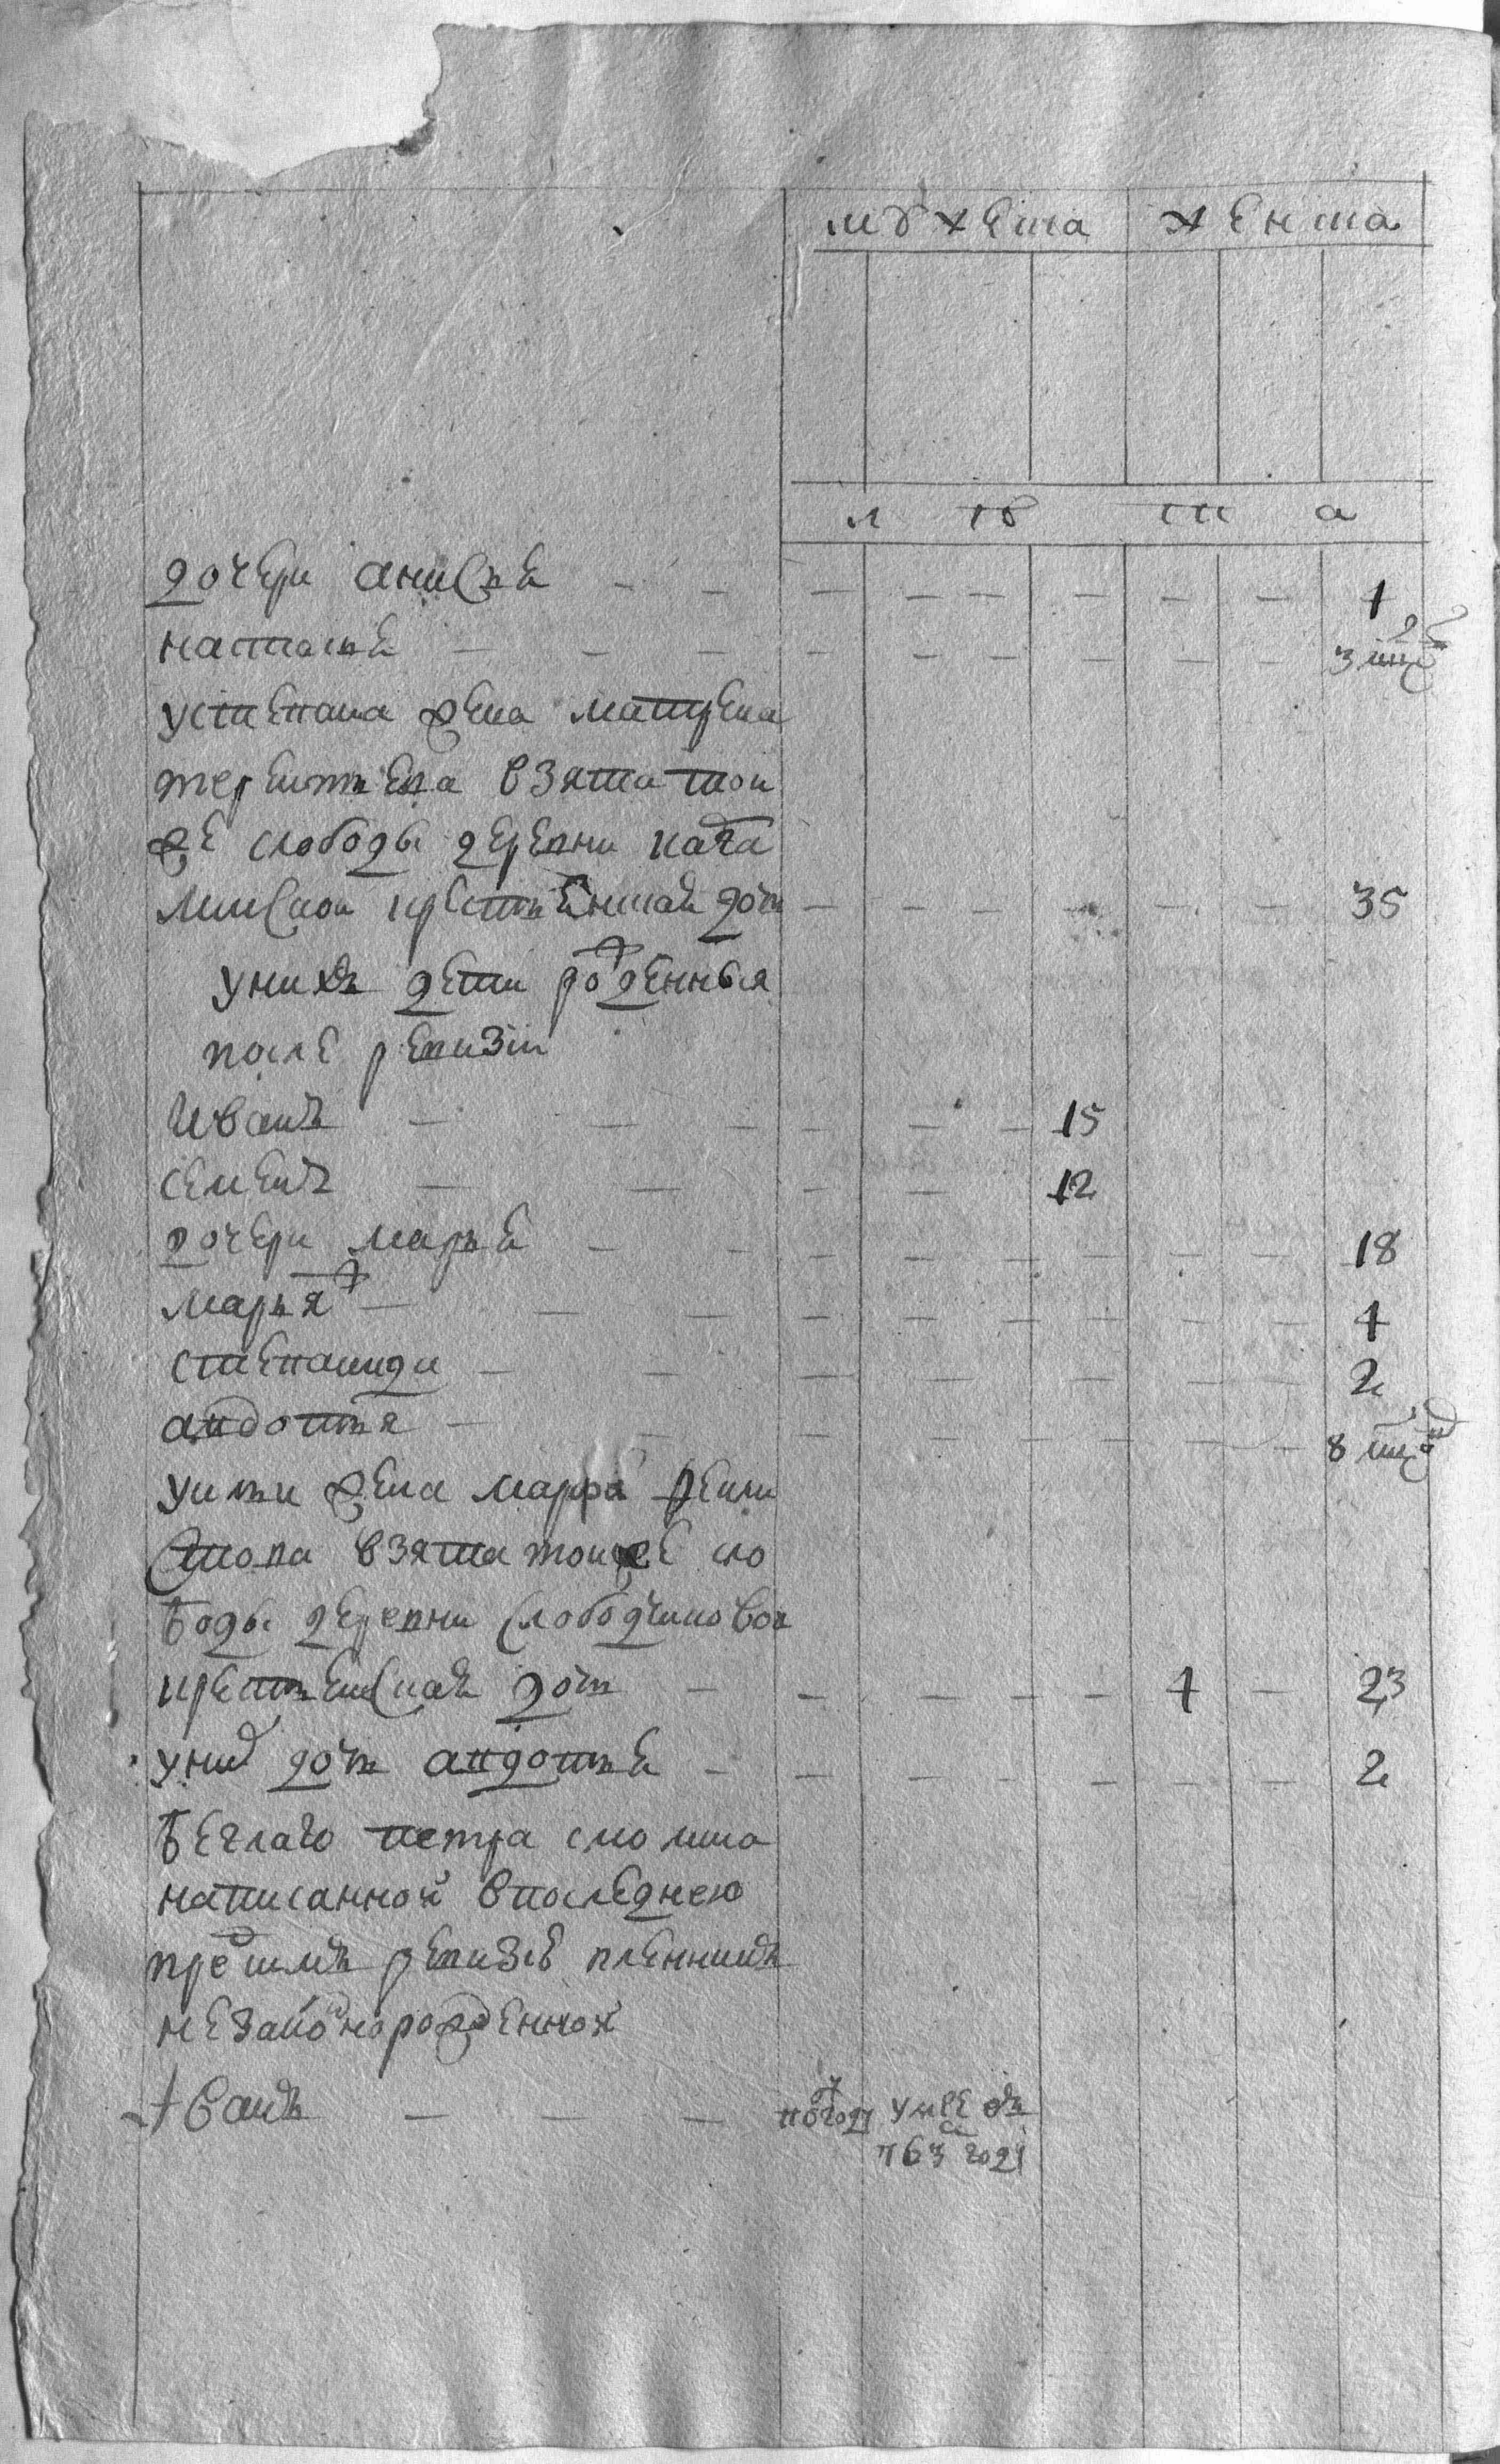 мужеска женска
л ѣ т а
дочери анисьи 1
настасьи 3 мц
устепана жена матрена
терентьева взята тои
же слободы деревни кача
лмиской крестьянская дочь 35
унихъ дети рожденныя
после ревизии
Иванъ 15
семенъ 12
дочери марьи 18
марья 1
степанида 2
авдотья 8 мцовъ
жена марфа
взята тоиже сло
боды деревни слободчиковой
крестьянская дочь 1 23
унихъ дочь авдотья 2
беглаго петра
написанной впоследнею
предъ симъ ревизе пленникъ
незаконорожденной
Иванъ погодъ умре въ
763 годе